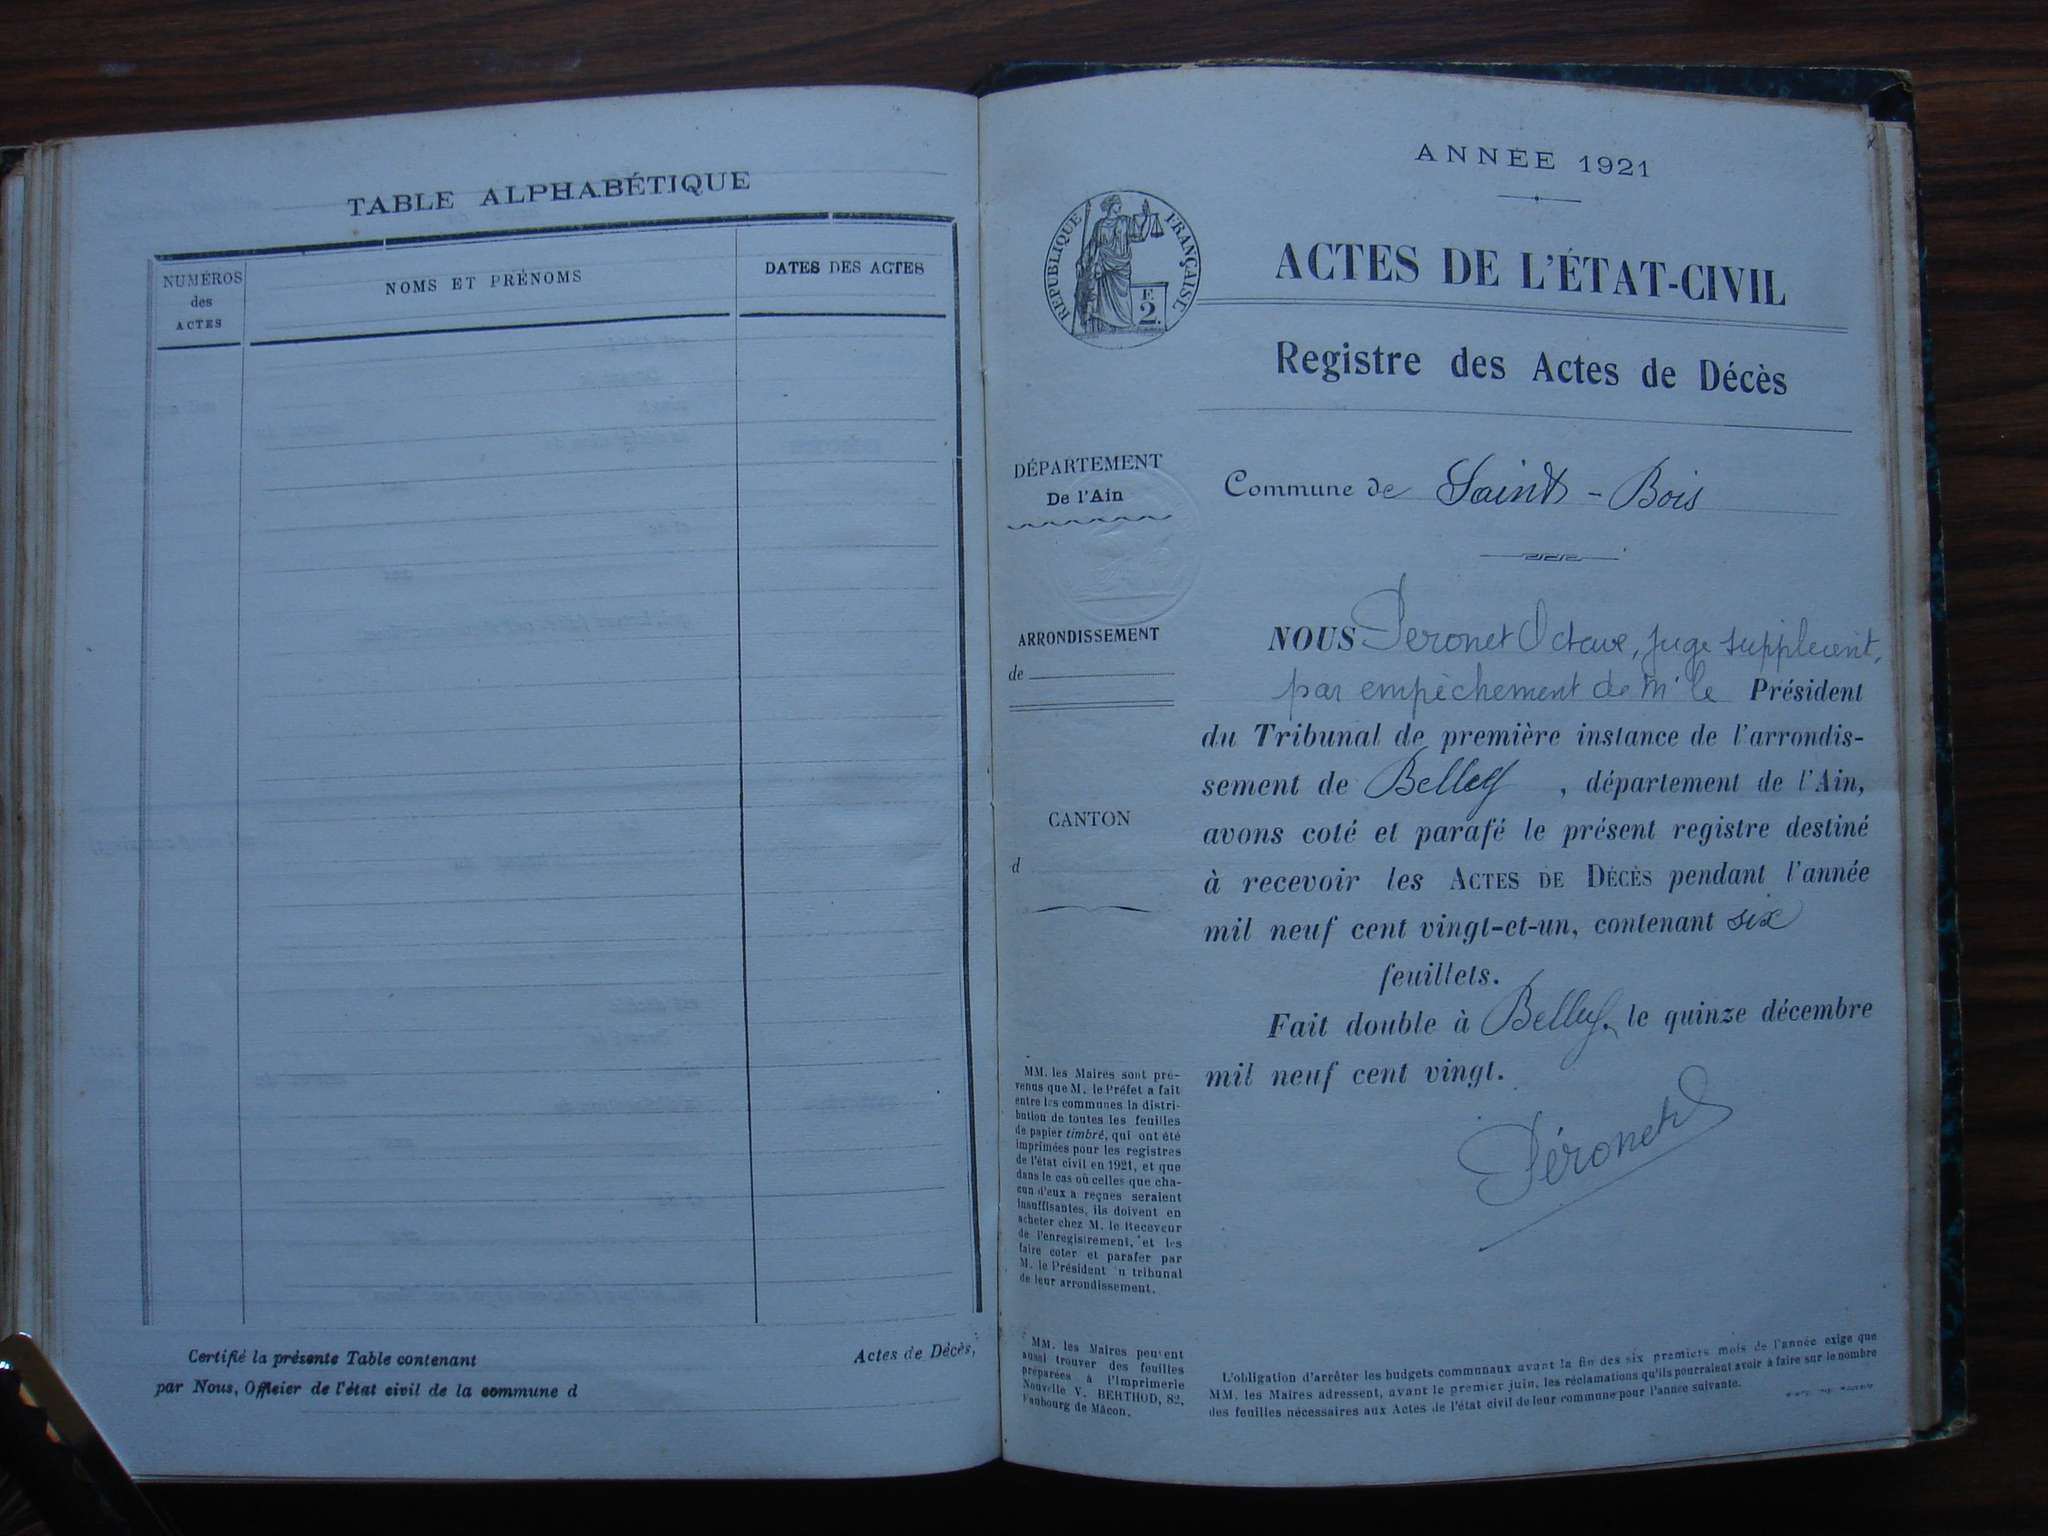 TABLE ALPHABÉTIQUE
NUMÉROS
des
ACTES
NOMS ET PRÉNOMS
DATES DES ACTES
Certifié la présente Table contenant Actes de Décès,
par Nous, Officier de l'état civil de la commune d
ANNÉE 1921
RÉPUBLIQUE FRANÇAISE
F.
2.
ACTES DE L'ÉTAT-CIVIL
Registre des Actes de Décès
DÉPARTEMENT
De l'Ain
Commune de Saint - Bois
ARRONDISSEMENT
de
CANTON
d
NOUS Péronet Octave, juge suppléant,
par empêchement de Mr le Président
du Tribunal de première instance de l'arrondis-
sement de Belley, département de l'Ain,
avons coté et parafé le présent registre destiné
à recevoir les ACTES DE DÉCÈS pendant l'année
mil neuf cent vingt-et-un, contenant six
feuillets.
Fait double à Belley, le quinze décembre
mil neuf cent vingt.
Péronet
MM. les Maires sont pré-
venus que M. le Préfet a fait
entre les communes la distri-
bution de toutes les feuilles
de papier timbré, qui ont été
imprimées pour les registres
de l'état civil en 1921, et que
dans le cas où celles que cha-
cun d'eux a reçues seraient
insuffisantes, ils doivent en
acheter chez M. le Receveur
de l'enregistrement, et les
faire coter et parafer par
M. le Président n tribunal
de leur arrondissement.
MM. les Maires peuvent
aussi trouver des feuilles
préparées à l'Imprimerie
Nouvelle V. BERTHOD, 82,
Faubourg de Mâcon.
L'obligation d'arrêter les budgets communaux avant la fin des six premiers mois de l'année exige que
MM. les Maires adressent, avant le premier juin, les réclamations qu'ils pourraient avoir à faire sur le nombre
des feuilles nécessaires aux Actes de l'état civil de leur commune pour l'année suivante.